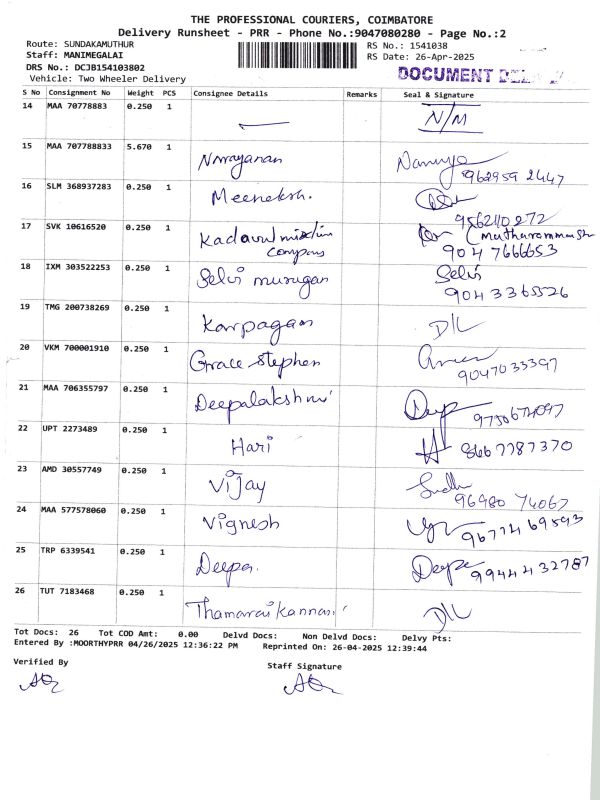 THE PROFESSIONAL COURIERS, COIMBATORE
Delivery Runsheet - PRR - Phone No.:9047080280 - Page No.:2
Route: SUNDAKAMUTHUR RS No.: 1541038
Staff: MANIMEGALAI RS Date: 26-Apr-2025
DRS No.: DCJB154103802 DOCUMENT
Vehicle: Two Wheeler Delivery
S No Consignment No Weight PCS Consignee Details Remarks Seal & Signature
14 MAA 70778883 0.250 1 N/M
15 MAA 707788833 5.670 1
Narayanan
9629592447
16 SLM 368937283 0.250 1
Meenakshi.
9562110272
17 SVK 10616520 0.250 1
Kadavul
904 7666653
18 IXM 303522253 0.250 1 Selvi
Selvi murugan
9043365526
19 TMG 200738269 0.250 1
Karpagam D/L
20 VKM 700001910 0.250 1
Grace Stephen
9047033397
21 MAA 706355797 0.250 1
Deepalakshmi
22 UPT 2273489 0.250 1
Hari 8667787370
23 AMD 30557749 0.250 1
Vijay
96980 74067
24 MAA 577578060 0.250 1
Vignesh
96774 69593
25 TRP 6339541 0.250 1
Deepa. Deepa
9944432787
26 TUT 7183468 0.250 1
Thamaraikannan D/L
Tot Docs: 26 Tot COD Amt: 0.00 Delvd Docs: Non Delvd Docs: Delvy Pts:
Entered By :MOORTHYPRR 04/26/2025 12:36:22 PM Reprinted On: 26-04-2025 12:39:44
Verified By Staff Signature